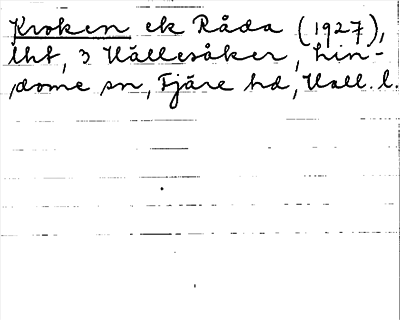 Kroken ek Råda (1927),
lht, 3 Hällesåker, Lin-
dome sn, Fjäre hd, Hall. l.